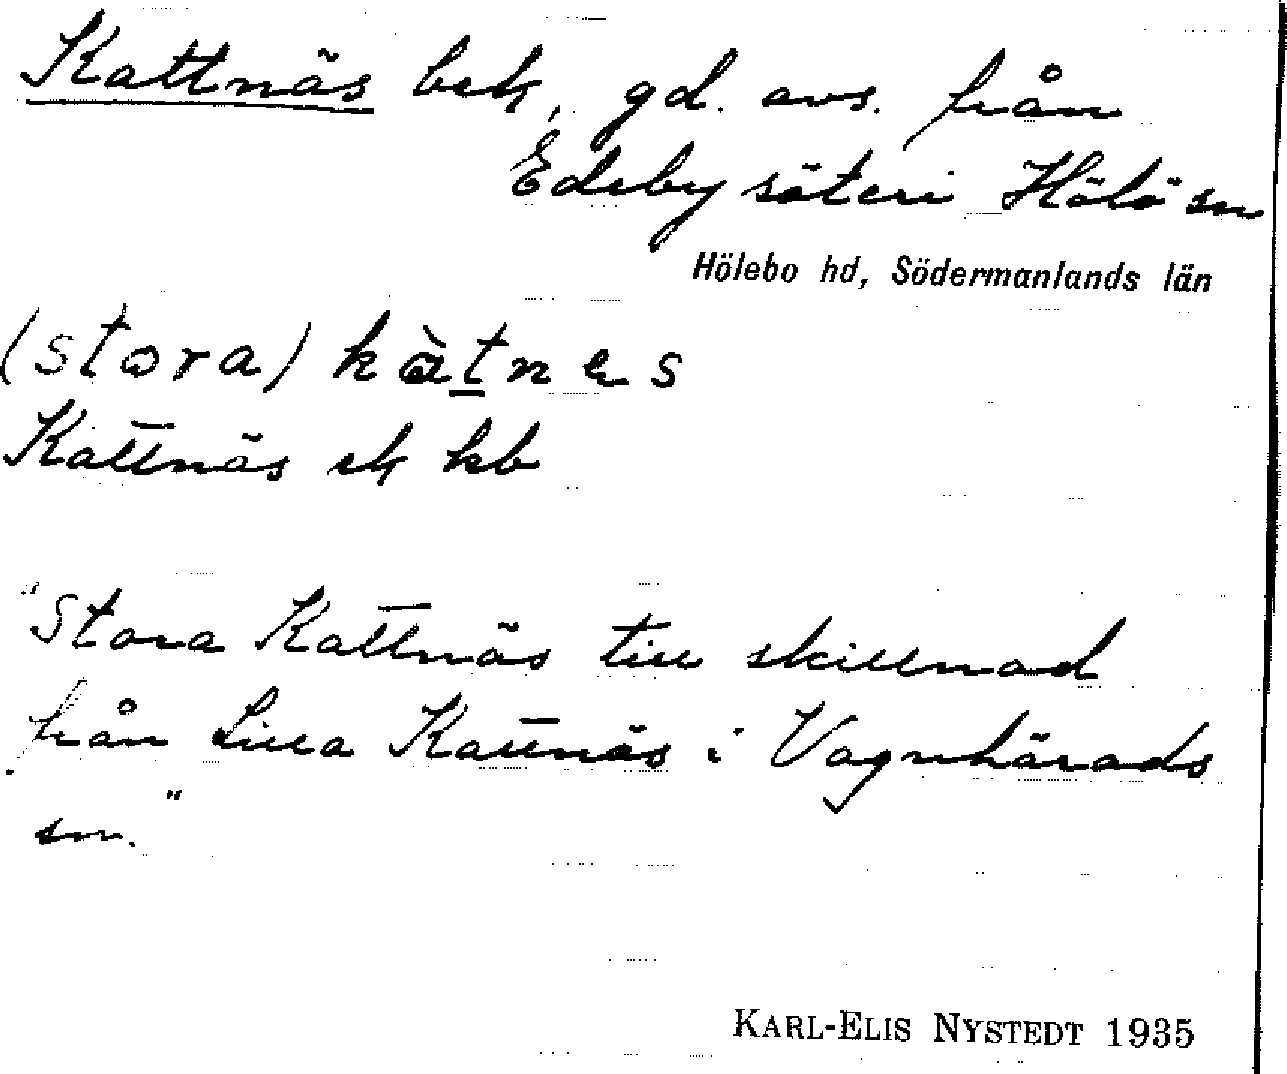 Kattnäs bek, gd. avs. från
Edeby säteri Hölö sn
Hölebo hd, Södermanlands län
(stora) kàtnes
Kattnäs ek kb
"Stora Kattnäs till skillnad
från Lilla Kattnäs i Vagnhärads
sn."
KARL-ELIS NYSTEDT 1935